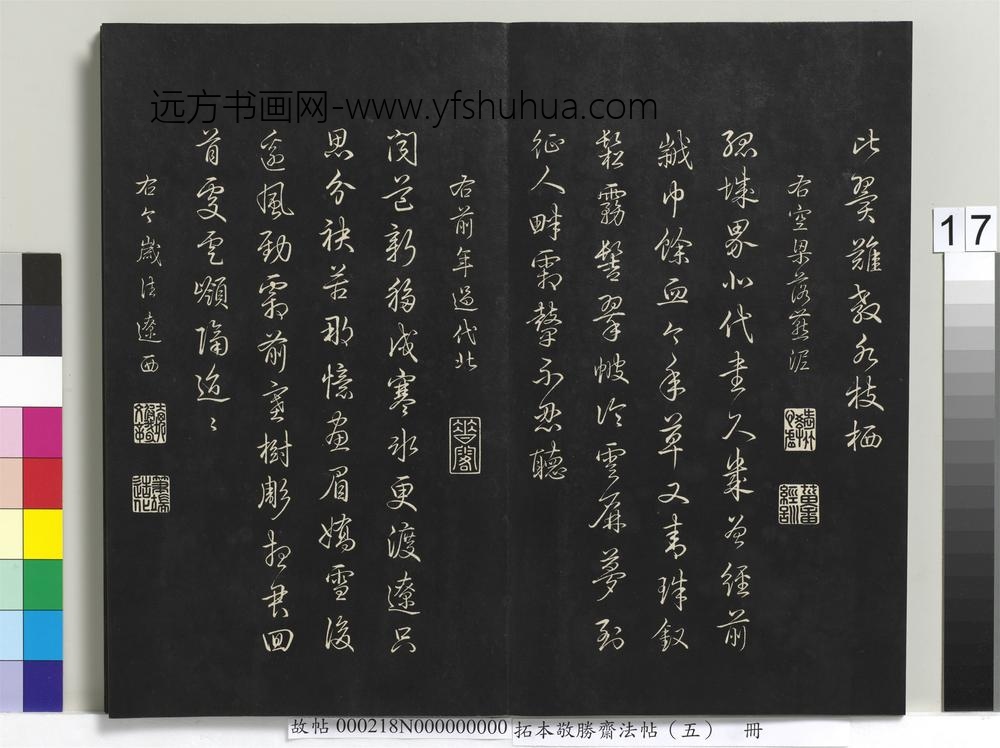 远方书画网-www.yfshuhua.com
比翼難教各枝栖
右空梁落燕泥
孤城界北代書久業曾經前
緘巾餘血今年草又青珠釵
鬆霧鬢翠帔冷雲屏夢到
征人畔霜鼙不忍聽
右前年過代北
聞道新移戍寒冰更渡遼只
思分袂苦那憶畫眉嬌雪後
邊風勁霜前塞樹彫想君回
首處雲嶺隔迢〻
右今歲往遼西
17
故帖 000218N000000000 拓本敬勝齋法帖（五） 冊